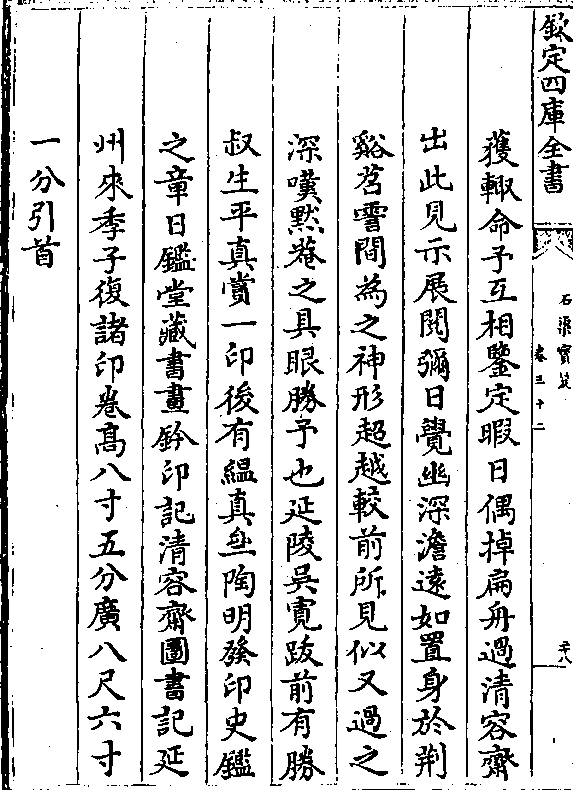 欽定四庫全書
石渠寶笈
卷三十二
二十八
獲輙命予互相鑒定暇日偶掉扁舟過清容齋
出此見示展閱彌日覺幽深澹遠如置身於荆
谿苕霅間為之神形超越較前所見似又過之
深嘆黙菴之具眼勝予也延陵吳寛跋前有勝
叔生平真賞一印後有緼真㐫陶明發印史鑑
之章日鑑堂藏書畫鈐印記清容齋圖書記延
州來季子復諸印卷髙八寸五分廣八尺六寸
一分引首